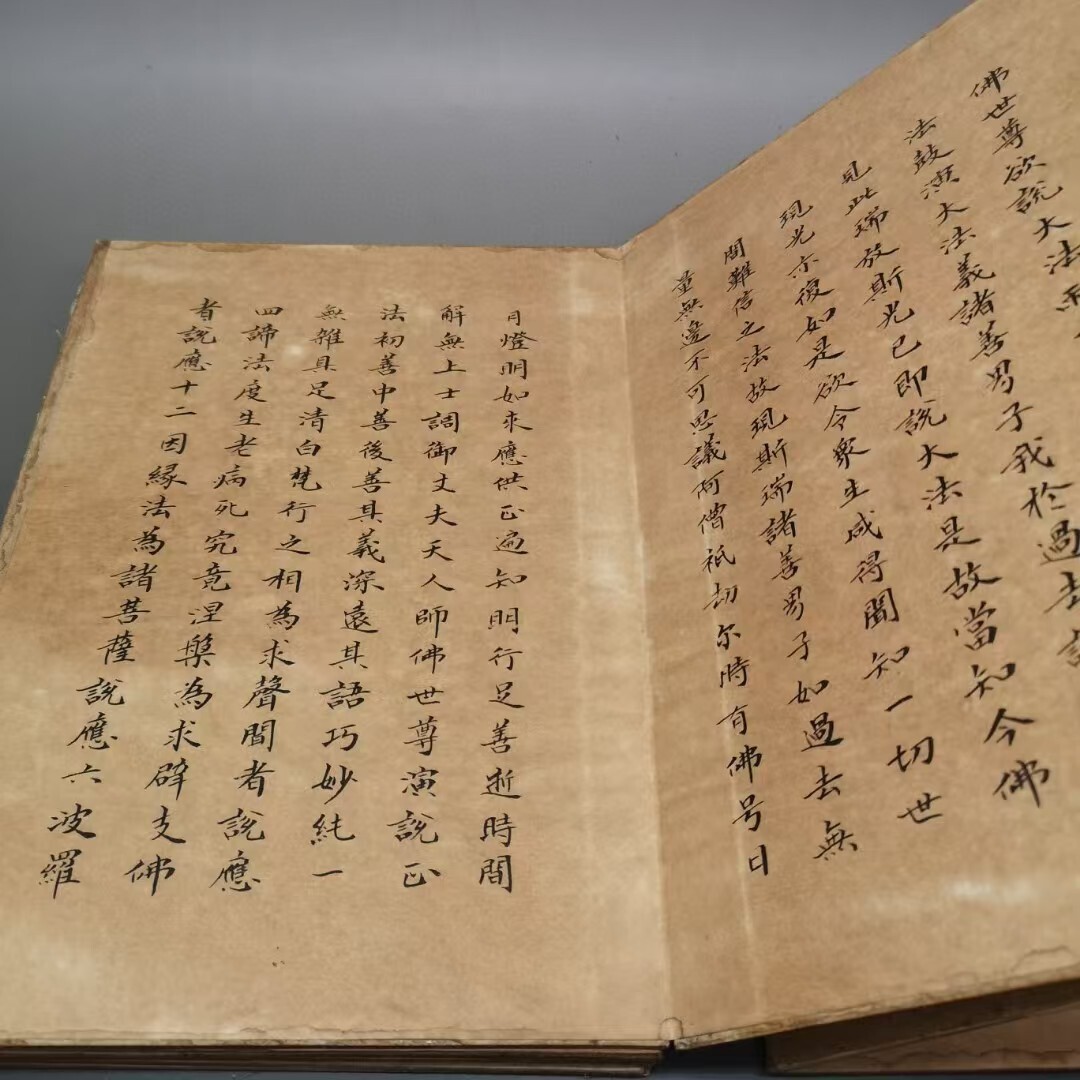 佛世尊欲說大法
法鼓演大法義諸善男子我於過去
見此瑞放斯光已即說大法是故當知今佛
現光亦復如是欲令衆生咸得聞知一切世
間難信之法故現斯瑞諸善男子如過去無
量無邊不可思議阿僧祇劫尔時有佛号日
月燈明如來應供正遍知明行足善逝時間
解無上士調御丈夫天人師佛世尊演說正
法初善中善後善其義深遠其語巧妙純一
無雜具足清白梵行之相為求聲聞者說應
四諦法度生老病死究竟涅槃為求辟支佛
者說應十二因緣法為諸菩薩說應六波羅